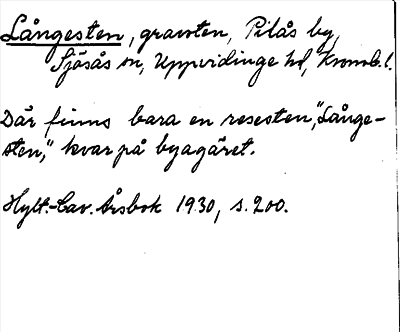 Långesten, gravsten, Pilås by,
Sjösås sn, Uppvidinge hd, Kronob. l.
Där finns bara en resesten, "Långe-
sten," kvar på byagäret.
Hylt.-Cav. Årsbok 1930, s. 200.